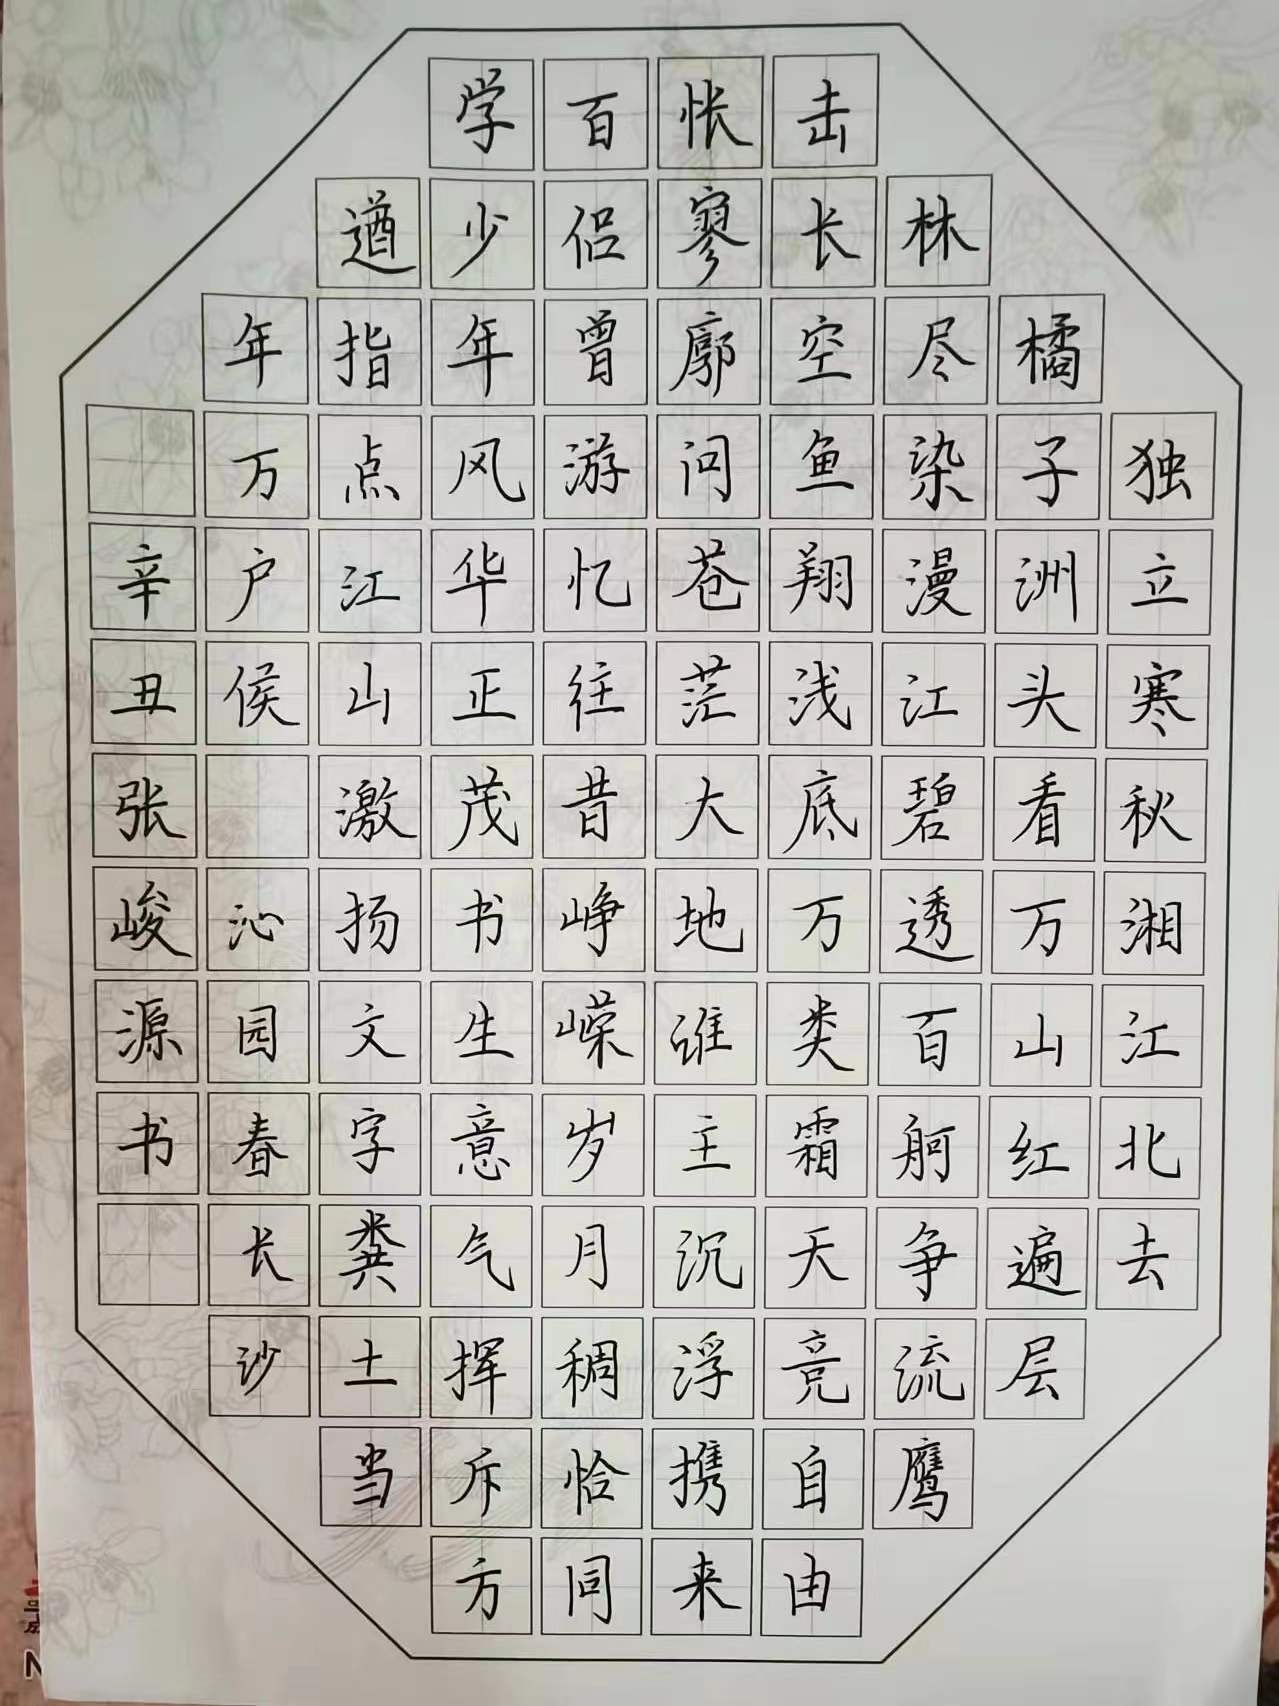 独立寒秋湘江北去
橘子洲头看万山红遍层
林尽染漫江碧透百舸争流鹰
击长空鱼翔浅底万类霜天竞自由
怅寥廓问苍茫大地谁主沉浮携来
百侣曾游忆往昔峥嵘岁月稠恰同
学少年风华正茂书生意气挥斥方
遒指点江山激扬文字粪土当
年万户侯 沁园春长沙
辛丑张峻源书